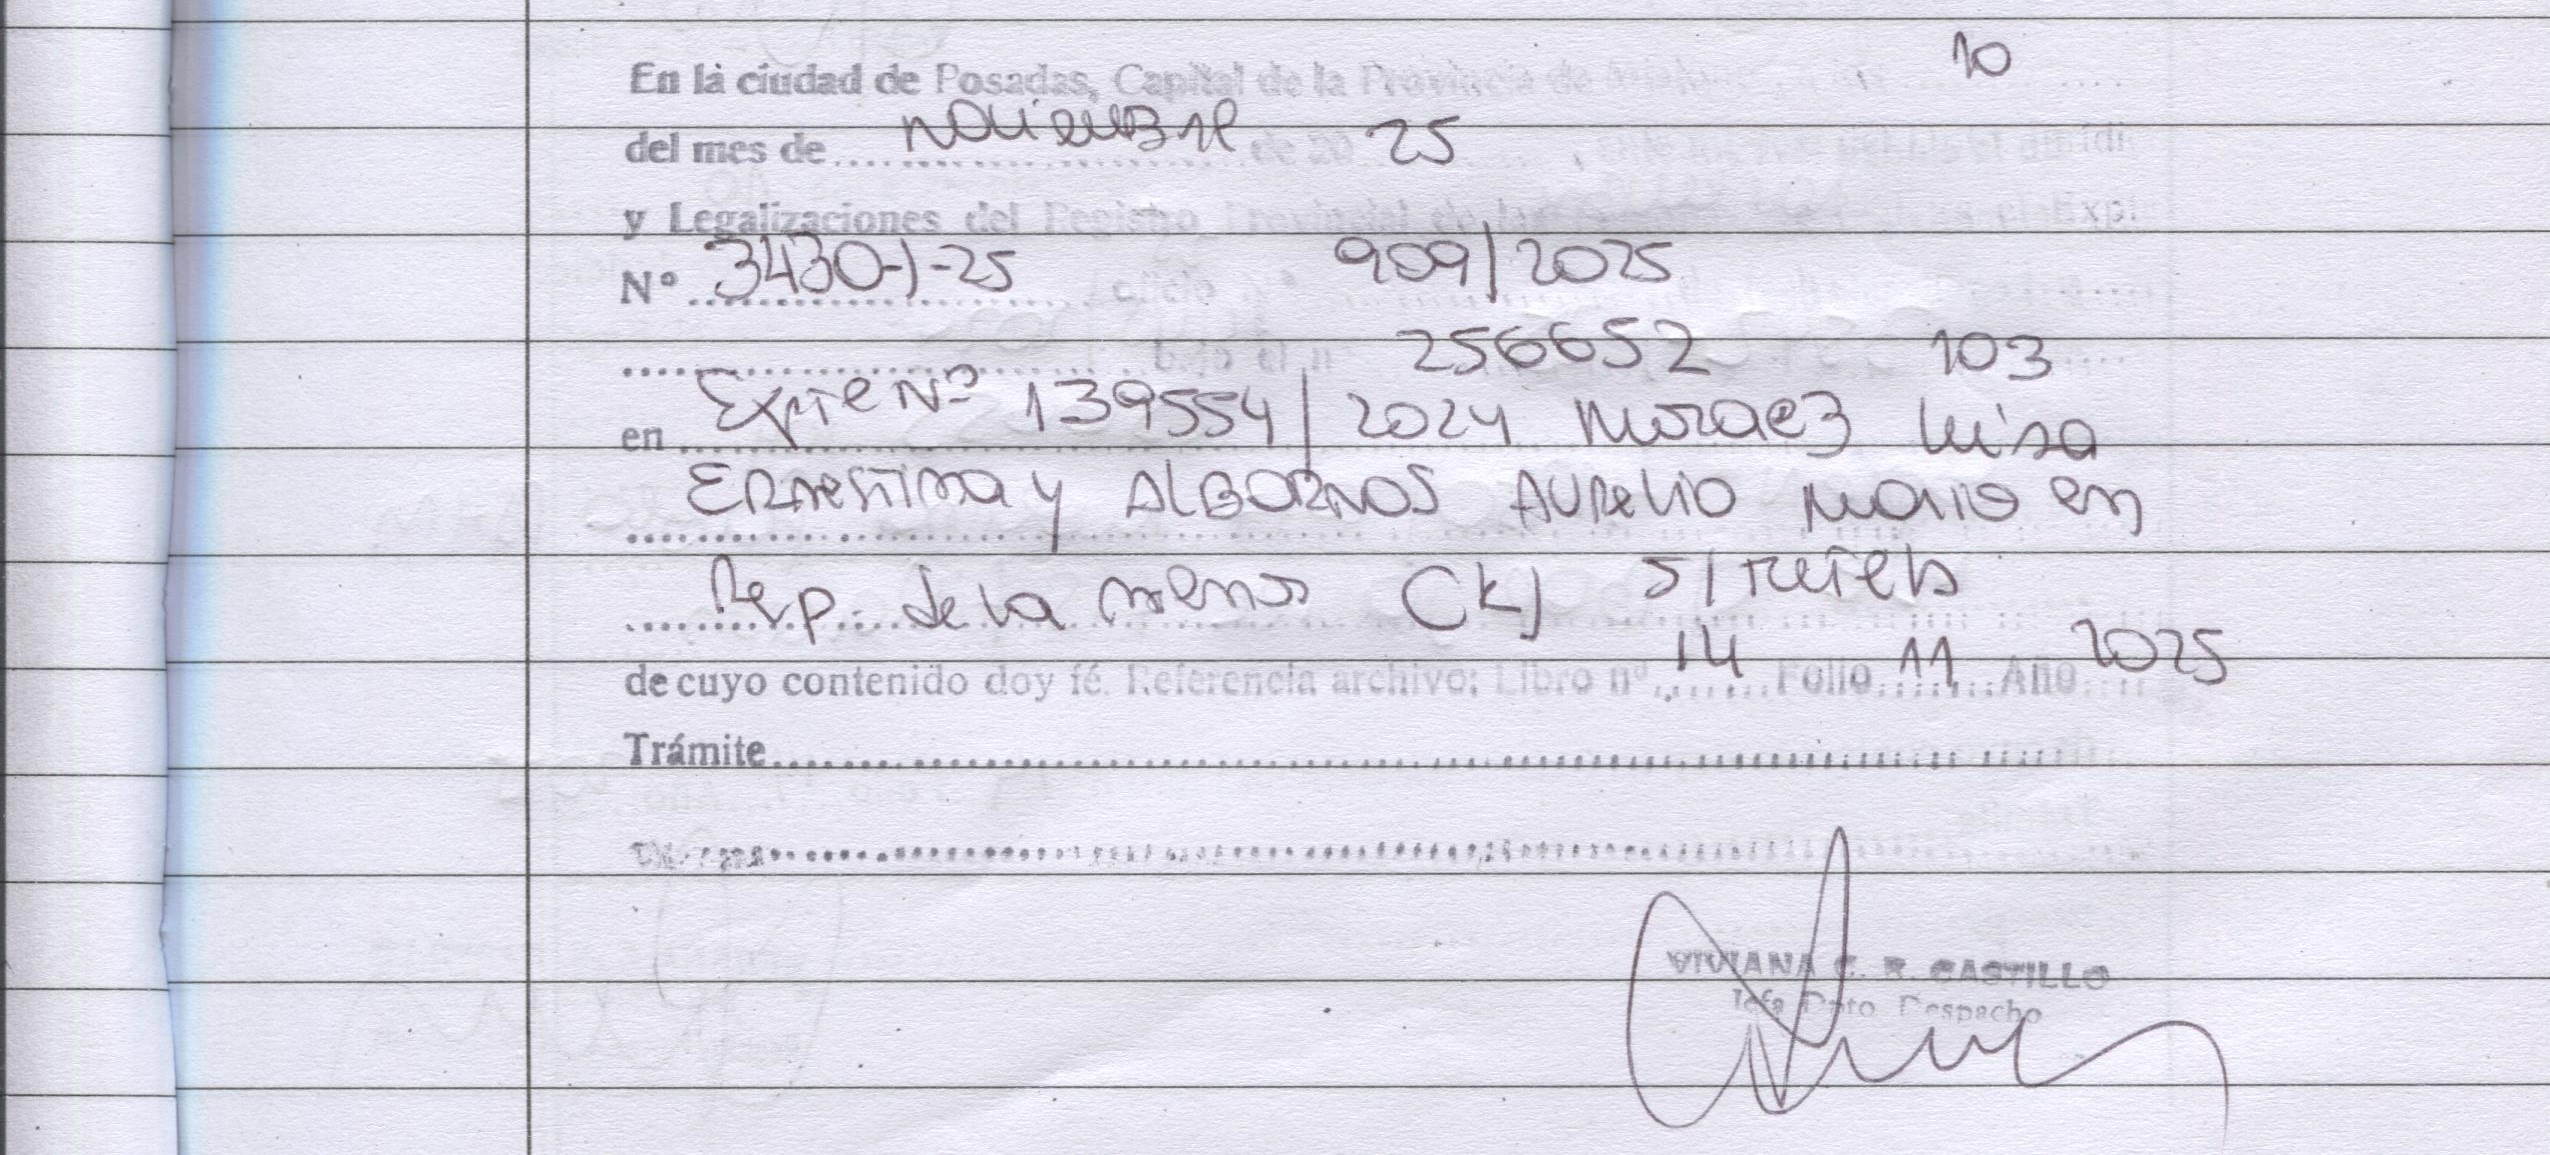 10
En la ciudad de Posadas, Capital de la Provincia de
del mes de noviembre de 20 25
y Legalizaciones del Registro Provincial de las Expte
Nº 3430-J-25 oficio nº 909/2025
bajo el nº 256652 103
en Expte Nº 139554/2024 Moraez Luisa
Ernestina y ALBORNOS AURelio Mario en
Rep. de la menor CKJ s/tutela
de cuyo contenido doy fé. Referencia archivo: Libro nº 14 Folio 11 Año 2025
Trámite
VIVIANA C. R. CASTILLO
Jefa Dpto Despacho